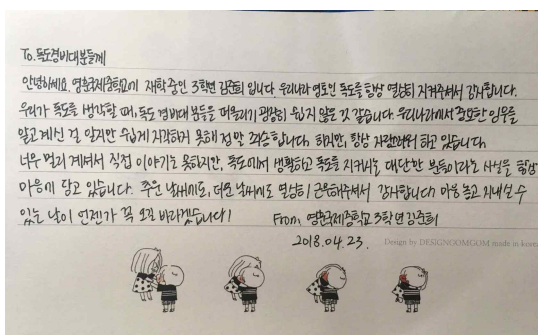 To. 독도경비대분들께
안녕하세요. 영훈국제중학교에 재학중인 3학년 김준희 입니다. 우리나라 영토인 독도를 항상 열심히 지켜주셔서 감사합니다.
우리가 독도를 생각할 때, 독도 경비대 분들을 떠올리기 굉장히 쉽지 않은 것 같습니다. 우리나라에서 중요한 임무를
맡고 계신 걸 알지만 쉽게 자각하지 못해 정말 죄송합니다. 하지만, 항상 자랑스러워 하고 있습니다.
너무 멀리 계셔서 직접 이야기는 못하지만, 독도에서 생활하고 독도를 지키시는 대단한 분들이라는 사실을 항상
마음에 담고 있습니다. 추운 날씨에도, 더운 날씨에도 열심히 근무해주셔서 감사합니다! 마음 놓고 지내실 수
있는 날이 언젠가 꼭 오길 바라겠습니다!
From. 영훈국제중학교 3학년 김준희
2018.04.23.
Design by DESIGNGOMGOM made in korea